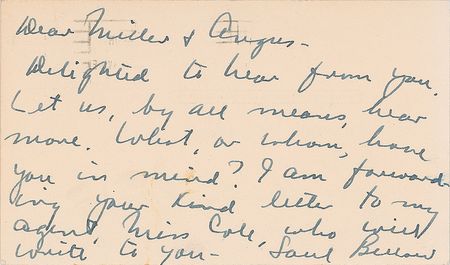 Dear Miller & Angus -
Delighted to hear from you.
Let us, by all means, hear
more. What, or whom, have
you in mind? I am forward-
ing your kind letter to my
agent, Miss Cole, who will
write to you - Saul Bellow